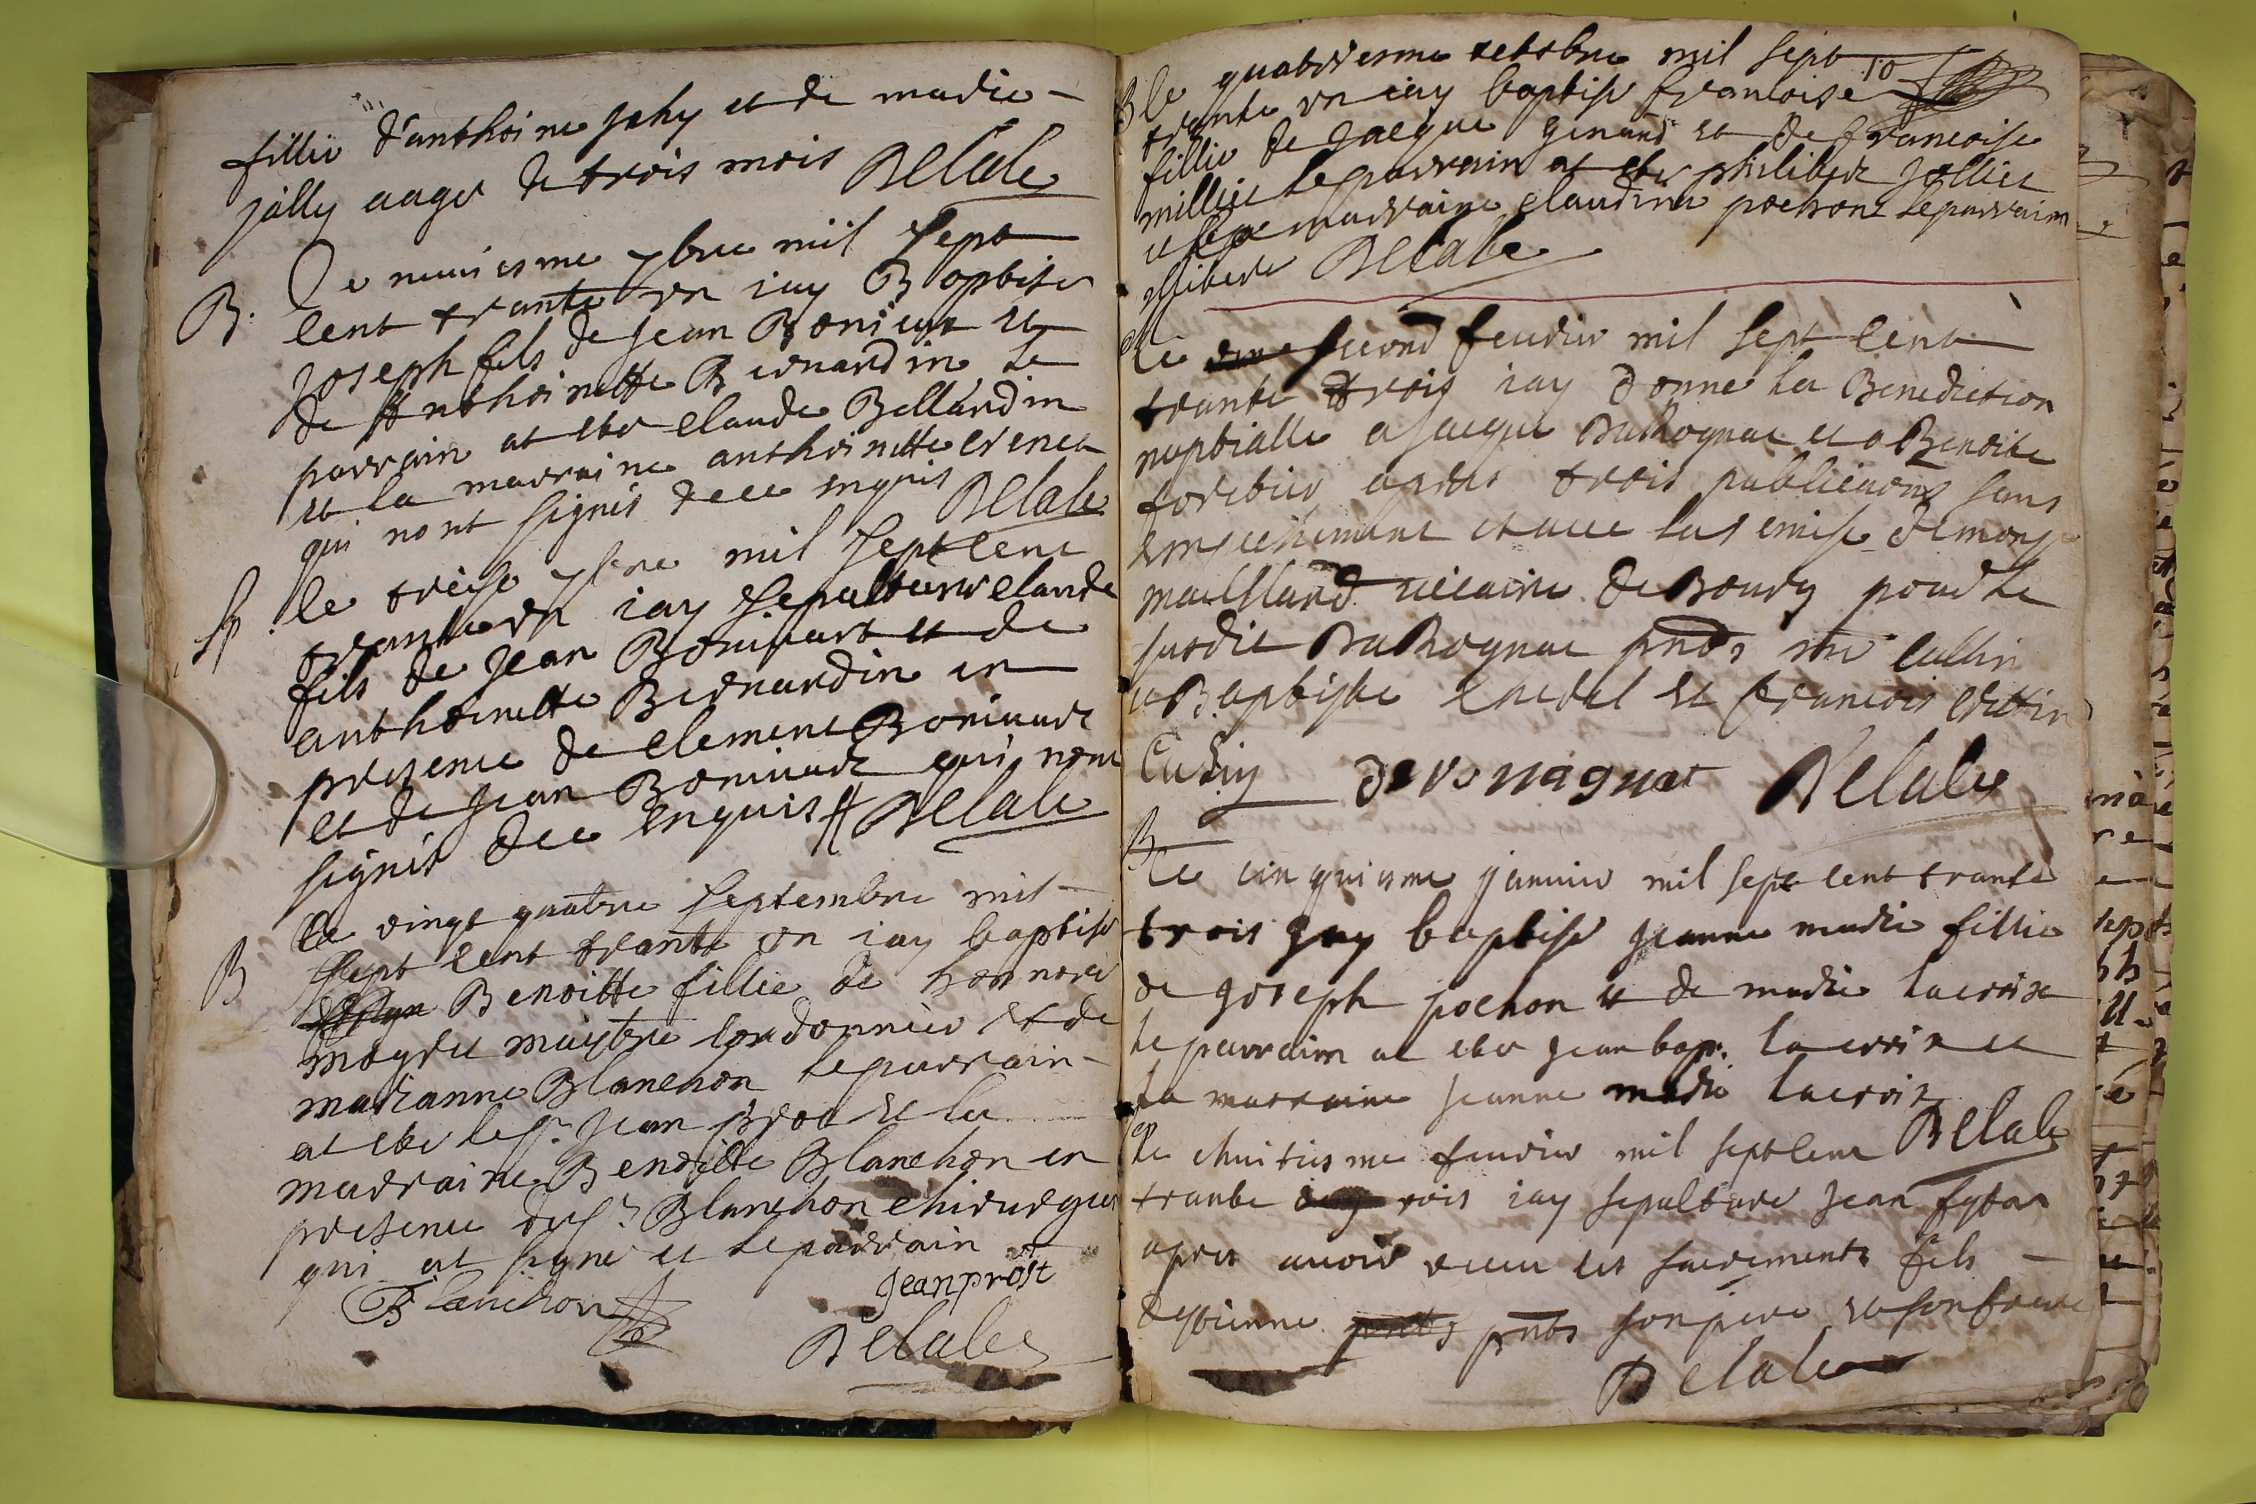 fillie d'anthoine Jahy et de marie
jolly aage de trois mois Delale
B. Le neuviesme 7bre mil sept
cent trante un iay Baptise
Joseph fils de Jean Bonivart et
de Anthoinette Bernardin le
parrain at este claude Bellandin
et la marraine anthoinette
qui nont signes de ce enquis Delale
Sp. le treise 7bre mil sept cent
trante un iay sepulture claude
fils de Jean Bonivart et de
anthoinette Bernardin en
presence de clement Bonivart
et de Jean Bonivart qui nont
signes de ce enquis Delale
B le vingt quatre septembre mil
sept cent trante un iay baptise
Benoitte fillie de honnore
maytre cordonnier et de
marianne Blanchon le parrain
at este le sr. Jean prot et la
marraine Benoitte Blanchon en
presence du sr. Blanchon chirurgien
qui at signe et le parrain
Blanchon Jean prost
Delale
10
B le quatriesme octobre mil sept
trante un iay baptise francoise
fillie de Jacque et de francoise
millet le parrain at este philibert Jolliet
et la marraine claudine pochon le parrain
Delale
le second feuvrier mil sept cent
trante trois iay donne la Benediction
nuptialle a Jacque et a Benoite
apres trois publications sans
empechement et avec la remise de mons
vicaire de Bourg pour le
susdit pnts
et Baptiste et francois
devognat Delale
B
Le cinquiesme janvier mil sept cent trante
trois Jay baptise Jeanne marie fillie
de Joseph pochon et de marie lacroix
le parrain at este Jean bap. lacroix et
la marraine Jeanne marie lacroix
Delale
Le huitiesme feuvrier mil sept cent
trante trois iay sepulture Jean
apres avoir receu les sacrements fils
detienne pnts pnts son pere et son frere
Delale